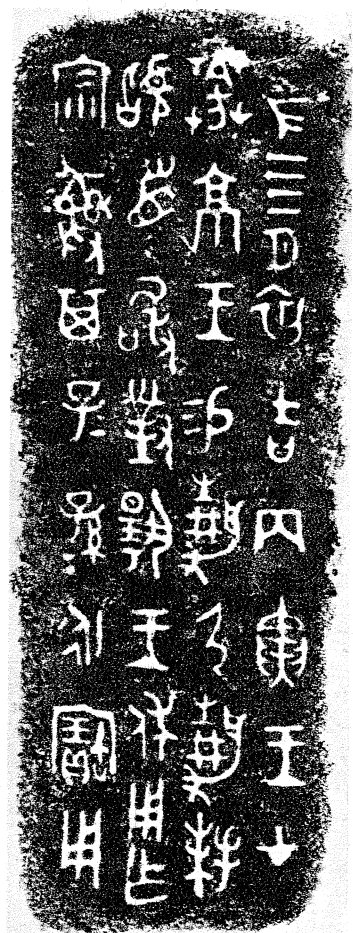 隹四月初吉丙寅王才
𦰩京王易靜弓靜拜
𩒨首敢對揚王休用乍
宗彝其子=孫=永寶用